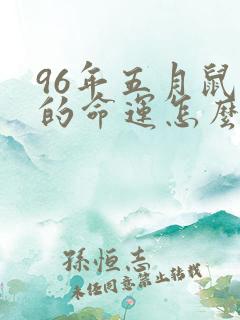 96年五月鼠
的命运怎麽
孫恒志
未经同意禁止转载